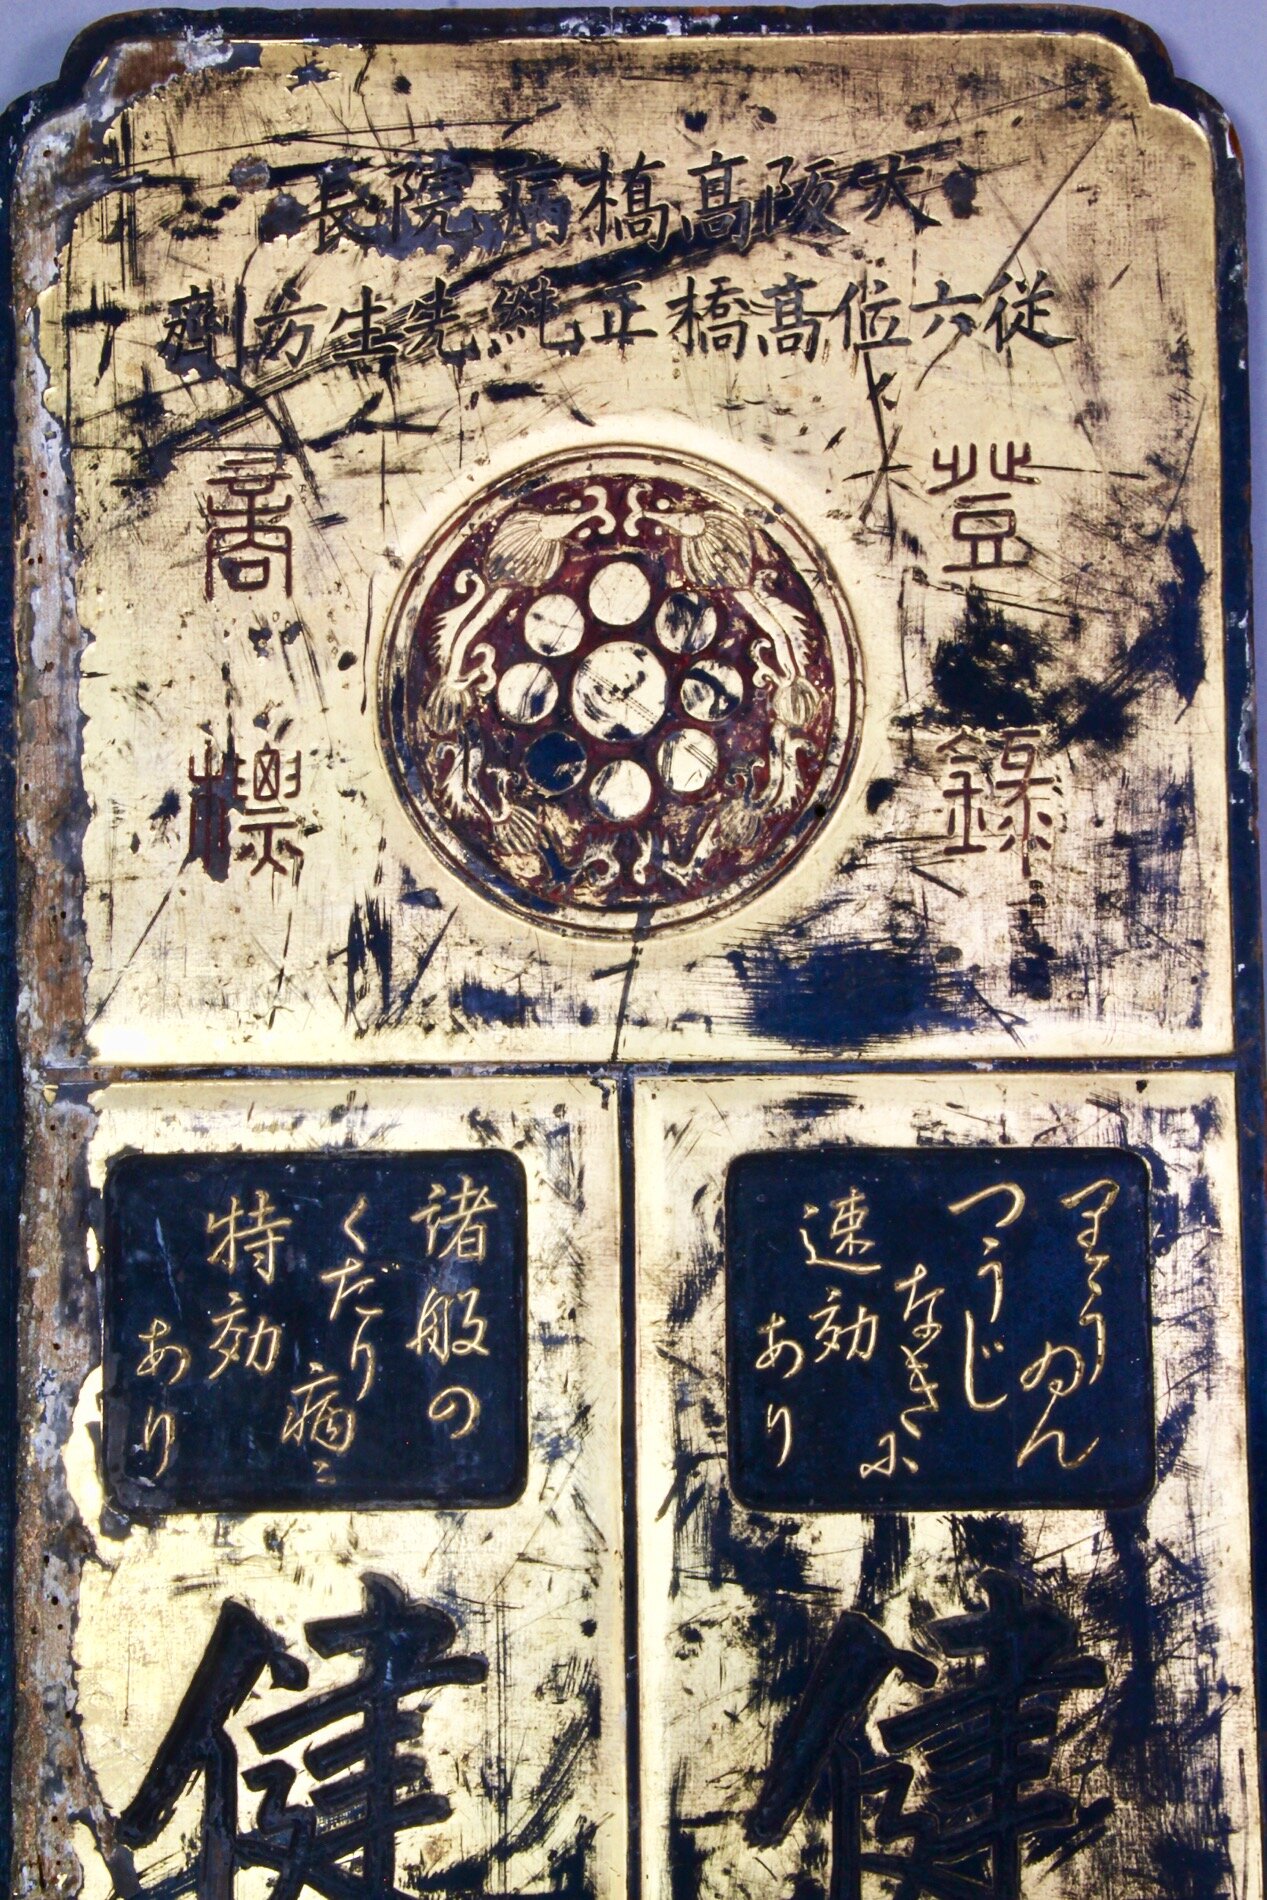 大阪髙橋病院長
従六位髙橋正純先生方劑
登録
商標
りうゐん
つうじ
なきに
速効
あり
健
諸般の
くだり
病ニ
特効
あり
健